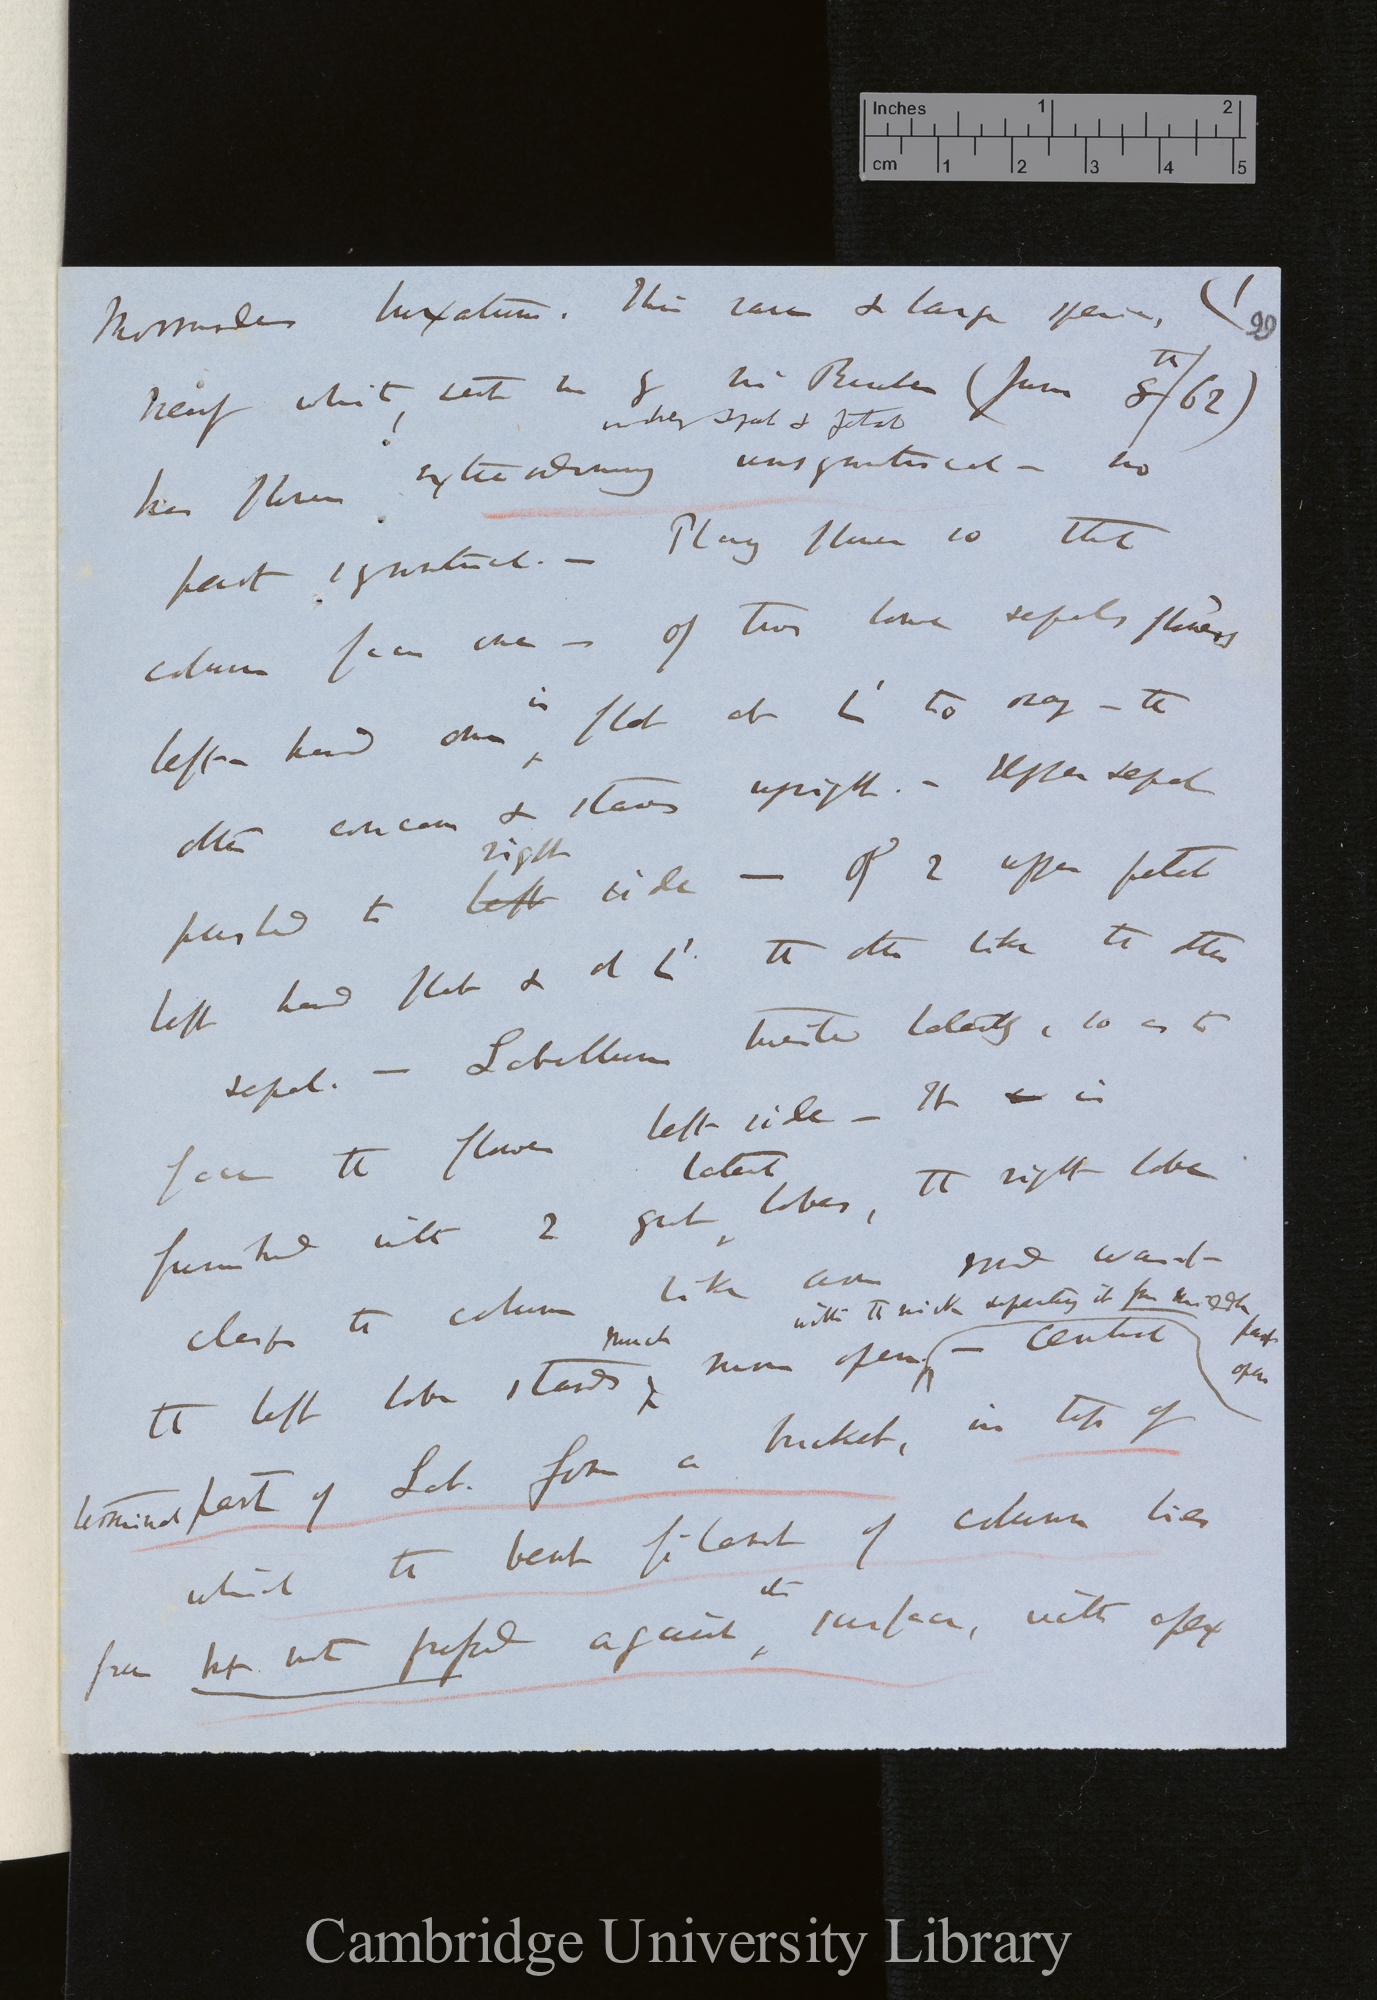 Inches 1 2
cm 1 2 3 4 5
Mormodes luxatum. This rare & large species, (1
99
nearly white, sent me by Mr Rucker (June 8th/62)
under sepal & petals
has flower extraordinary unsymmetrical — no
part symmetrical. — Placing flower so that
column face one — of two lower sepals flowers
left-hand one is flat at L' to axy — the
other concave & stands upright. — Upper sepal
right
pushed to left side — of 2 upper petals
left hand flat & at L' the other like the other
sepal. — Labellum twisted laterally, so as to
face the flower left side — It is
lateral
furnished with 2 great lobes, the right lobe
clasps the column like arm
with the nick separating it from middle part open
the left lobe stands much more open, — Central
terminal part of Lab. form a bucket, in top of
which the bent filament of column lies
free but not pressed against its surface, with apex
Cambridge University Library